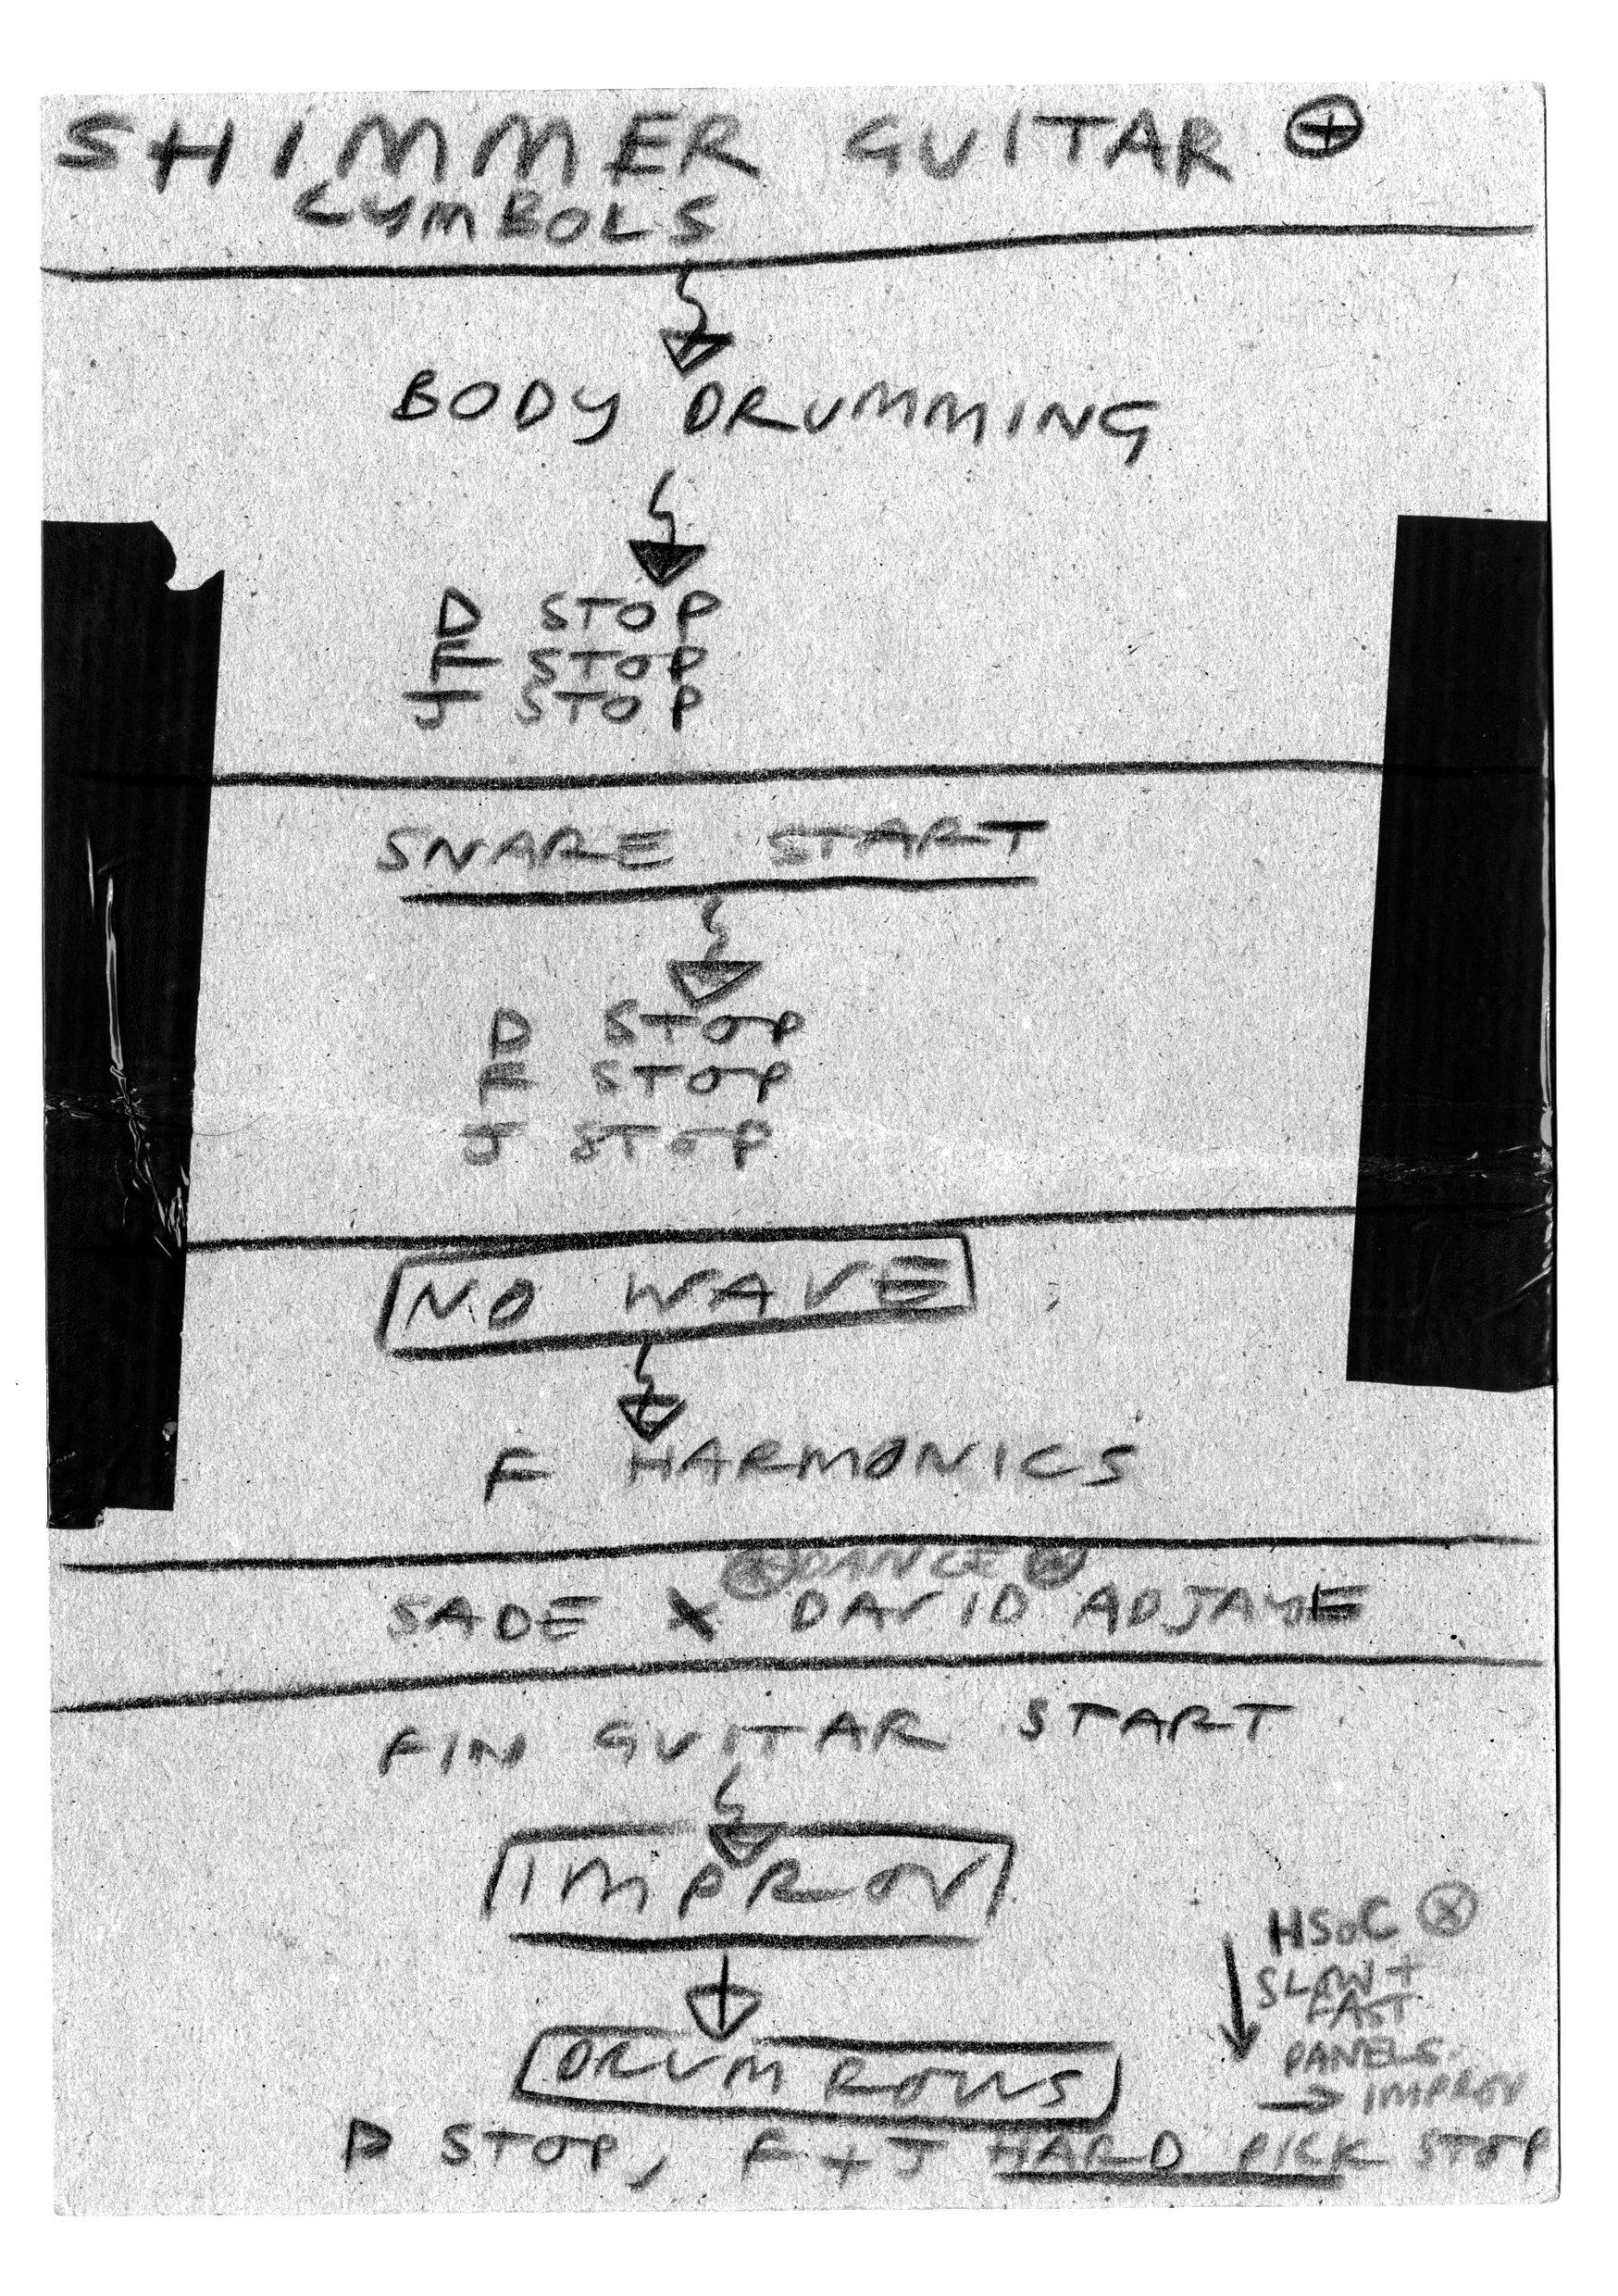 SHIMMER GUITAR ⊕
CYMBOLS
BODY DRUMMING
D STOP
F STOP
J STOP
SNARE START
D STOP
F STOP
J STOP
NO WAVE
F HARMONICS
DANCE
SADE X DAVID ADJAYE
FIN GUITAR START
IMPROV
DRUM ROWS
HSoC ⊗
SLOW +
FAST
PANELS.
→ IMPROV
D STOP, F + J HARD PICK STOP